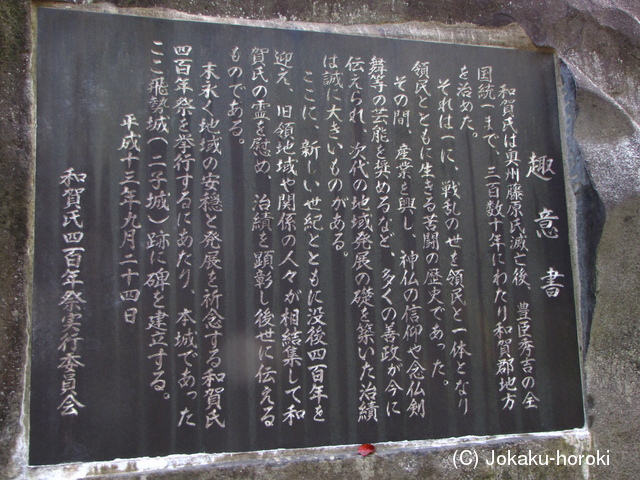 趣意書
和賀氏は奥州藤原氏滅亡後、豊臣秀吉の全
国統一まで、三百数十年にわたり和賀郡地方
を治めた。
それは一に、戦乱の世を領民と一体となり
領民とともに生きる苦闘の歴史であった。
その間、産業を興し、神仏の信仰や念仏剣
舞等の芸能を奨めるなど、多くの善政が今に
伝えられ、次代の地域発展の礎を築いた治績
は誠に大きいものがある。
ここに、新しい世紀とともに没後四百年を
迎え、旧領地域や関係の人々が相結集して和
賀氏の霊を慰め、治績を顕彰し後世に伝える
ものである。
末永く地域の安穏と発展を祈念する和賀氏
四百年祭を挙行するにあたり、本城であった
ここ飛勢城(二子城)跡に碑を建立する。
平成十三年九月二十四日
和賀氏四百年祭実行委員会
(C) Jokaku-horoki